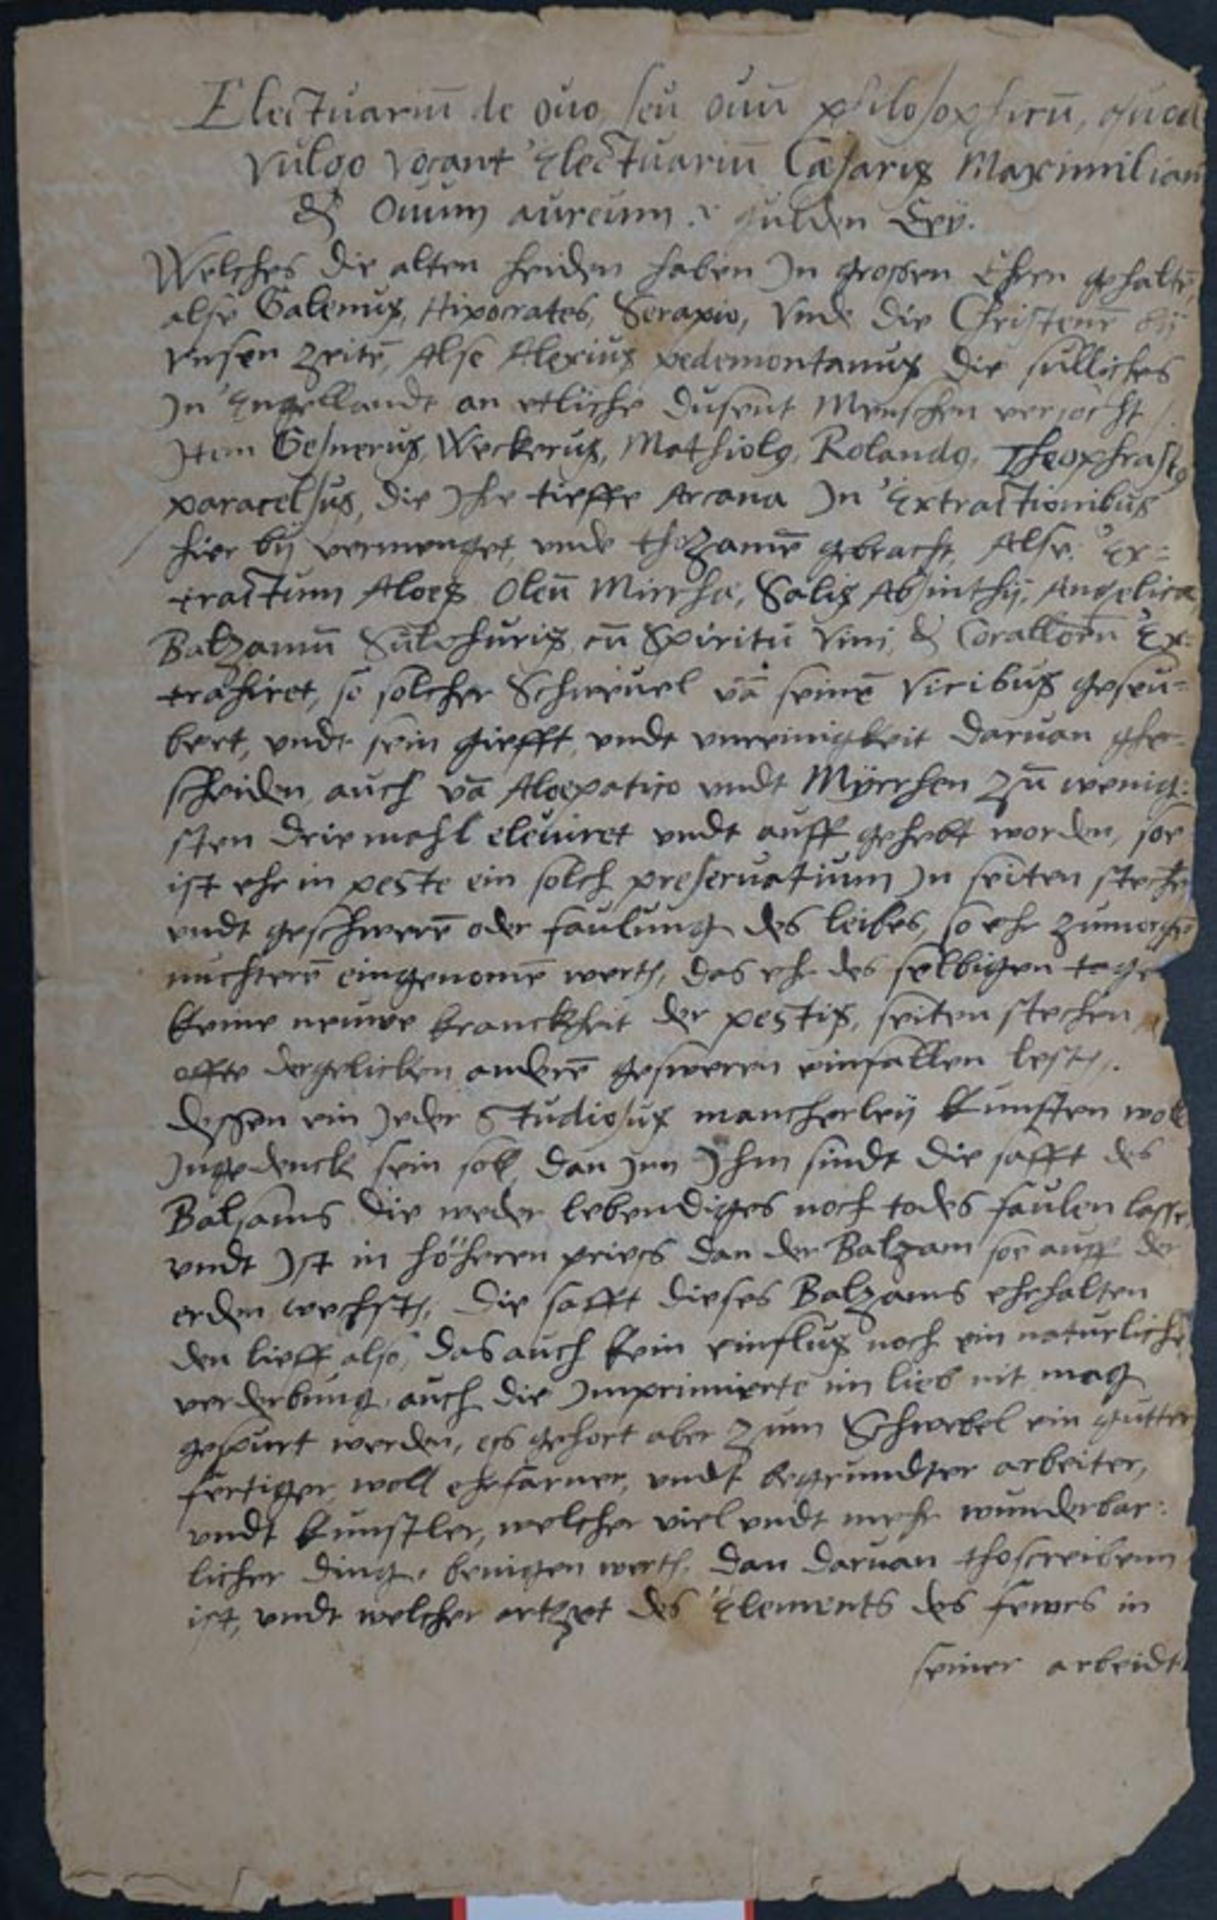 Electuariū de ouo, seu ouū philosophicū, quod
vulgo vocant Electuariū Cæsaris Maximilian
& Ouum aureum. gulden Eÿ.
Welches die alten heiden haben In grossen Ehren gehaltē,
alse Galenus, Hipocrates, Serapio, Vnde die Christenē bÿ
vnsen zeitē, Alse Alexius pedemontanus die sulliches
In Engellandt an etliche dusent Menschen versocht
Item Gesnerus, Weckerus, Mathiolg, Rolandg, Theophrastg
paracelsus, die Ihr tieffe Arcana In Extractionibus
hier bÿ vermenget, vnde thozamē gebracht, Alse. Ex=
tractum Aloes Oleū Mirrhæ, Salis Absinthÿ, Angelicæ
Balzamū Sulphuris, cū Spiritu Vini, & Corallorū Ex=
trahiret, so solcher Schweuel vā seinē viribus geseu=
bert, vndt sein giefft, vndt vnreinigkeit daruan ghe=
scheiden, auch vā Aloepatico vndt Mÿrrhen Zū wenig=
sten drie mahl eleuiret vndt auff gehebt worden, soe
ist ehr in peste ein solch preseruatium In seiten steche
vndt geschwerē oder faulung des leibes, so ehr zumorgē
nuchterē eingenomē werth, das ehr des selbigen tage
keine neuwe kranckheit der pestis, seiten stechen
offte dergelicken anderē gesweren einfallen lesth.
dessen ein Jeder Studiosus mancherleÿ kunsten woll
Ingedenck sein soll, dan Inn Ihm sindt die safft des
Balsams die weder lebendiges noch todes faulen lasse,
vndt Ist in höheren preies dan der Balzam soe auff der
erden wechsth, die safft dieses Balzams ehrhalten
den lieff also, das auch kein einflus noch ein naturliche
verderbung, auch die Imprimierte im lieb nit mag
gespurt werden, es gehort aber Zum Schwebel ein gutter
fertiger, woll ehrfarner, vndt begrundter arbeiter,
vndt kunstler, welcher viel vndt mehr wunderbar=
licher dinge benigen werth, dan daruan thoscreibenn
ist, vndt welcher artzet des Elements des fewrs in
seiner arbeidt